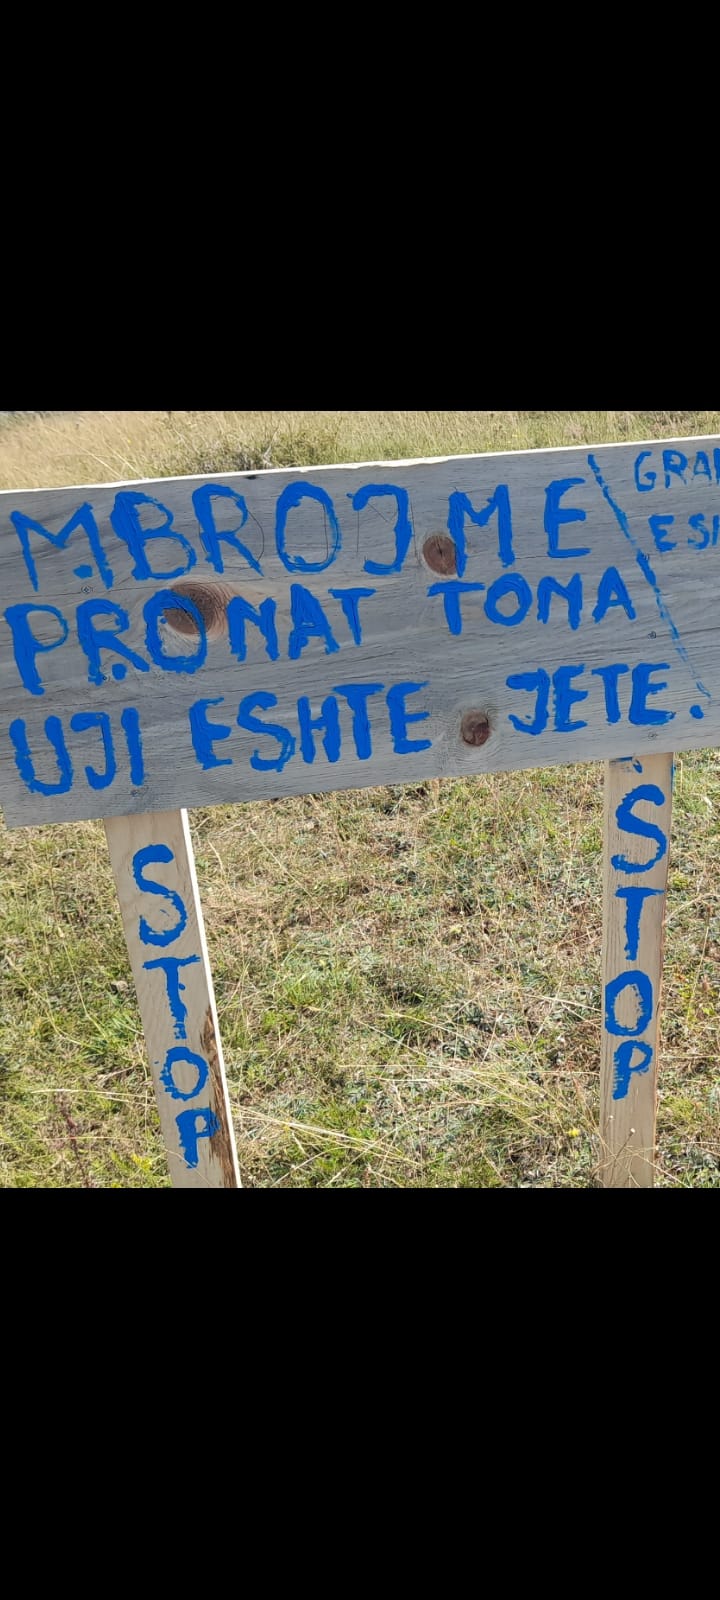 MBROJME
PRONAT TONA
UJI ESHTE JETE.
STOP
STOP